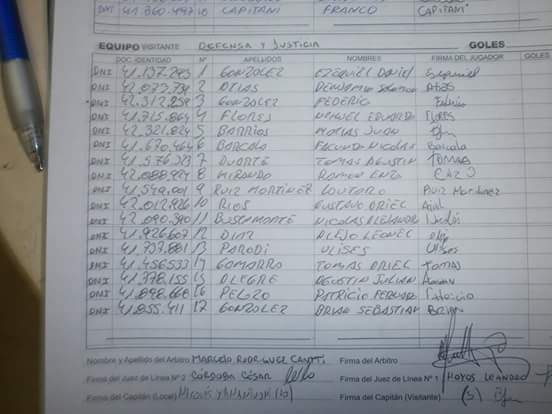 41.360.497 10 CAPITANI FRANCO CAPITANI
EQUIPO VISITANTE DEFENSA Y JUSTICIA GOLES
DOC. IDENTIDAD Nº APELLIDOS NOMBRES FIRMA DEL JUGADOR GOLES
DNI 41.137.295 1 GONZALEZ EZEQUIEL DANIEL Ezequiel
DNI 2 ATIAS BENJAMIN
DNI 42.312.258 3 GONZALEZ FEDERICO Federico
DNI 41.715.864 4 FLORES MIGUEL EDUARDO FLORES
DNI 42.321.824 5 BARRIOS MATIAS JUAN
DNI 41.670.464 6 BARCALA FACUNDO NICOLAS Barcala
DNI 41.576.373 7 DUARTE TOMAS AGUSTIN TOMAS
DNI 42.088.924 8 MIRANDA RAMON ENZO ENZO
DNI 41.549.001 9 RUIZ MARTINEZ LAUTARO Ruiz Martinez
DNI 42.012.926 10 RIOS GUSTAVO ARIEL Ariel
DNI 42.090.390 11 BUSTAMANTE NICOLAS ALEJANDRO Nicolás
DNI 41.926.607 12 DIAZ ALEJO LEONEL
DNI 41.737.801 13 PARODI ULISES Ulises
DNI 41.456.533 14 GAMARRA TOMAS ARIEL TOMAS
DNI 41.778.155 15 ALEGRE AGUSTIN JULIAN
DNI 41.898.668 16 PELOZO PATRICIO Patricio
DNI 41.855.411 17 GONZALEZ BRIAN SEBASTIAN Brian
Nombre y Apellido del Arbitro MARCELO RODRIGUEZ Firma del Arbitro
Firma del Juez de Línea Nº 2 CÓRDOBA CÉSAR Firma del Juez de Línea Nº 1 HOYOS LEANDRO
Firma del Capitán (Local) Firma del Capitán (Visitante) (5)